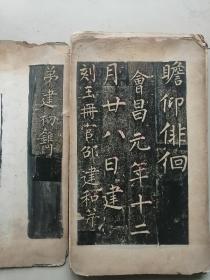 瞻仰徘徊
會昌元年十二
月廿八日建
刻玉冊官邵建和并
弟建初鐫